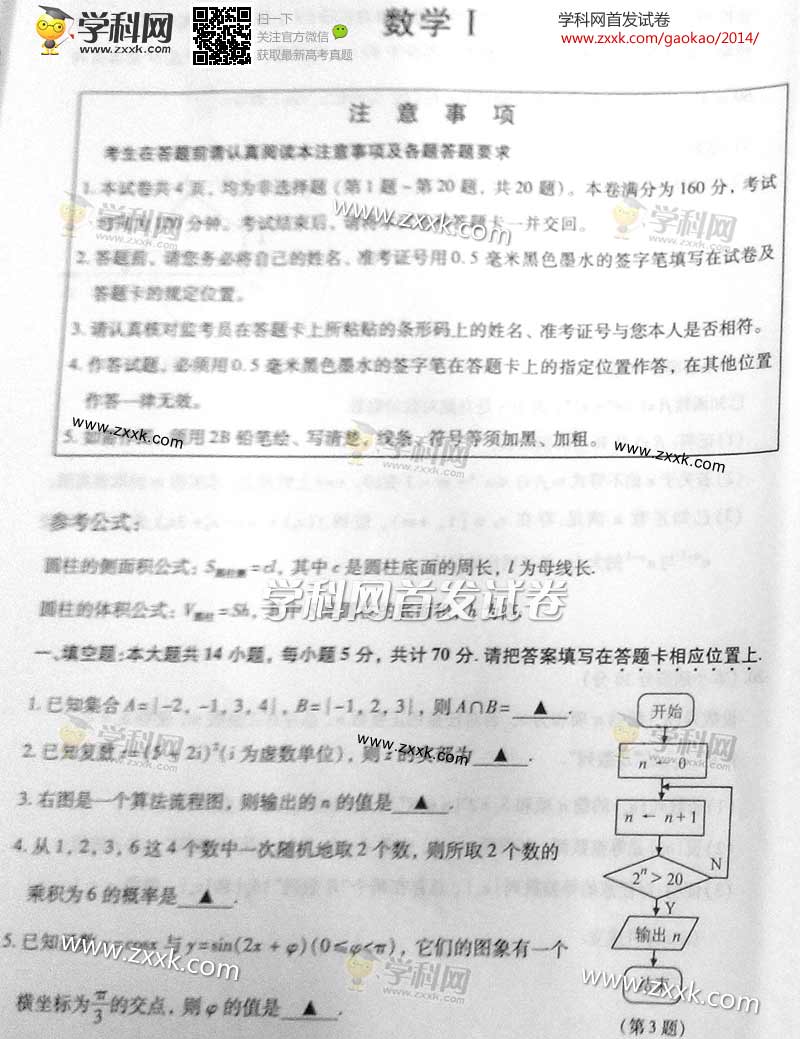 学科网
www.zxxk.com
扫一下
关注官方微信
获取最新高考真题
数学 I
学科网首发试卷
www.zxxk.com/gaokao/2014/
注 意 事 项
考生在答题前请认真阅读本注意事项及各题答题要求
1. 本试卷共 4 页，均为非选择题（第 1 题～第 20 题，共 20 题）。本卷满分为 160 分，考试
分钟。考试结束后，请将 答题卡一并交回。
2. 答题前，请您务必将自己的姓名、准考证号用 0.5 毫米黑色墨水的签字笔填写在试卷及
答题卡的规定位置。
3. 请认真核对监考员在答题卡上所粘贴的条形码上的姓名、准考证号与您本人是否相符。
4. 作答试题，必须用 0.5 毫米黑色墨水的签字笔在答题卡上的指定位置作答，在其他位置
作答一律无效。
5. 如需作图，须用 2B 铅笔绘、写清楚，线条、符号等须加黑、加粗。
www.zxxk.com
www.zxxk.com
www.zxxk.com
参考公式：
圆柱的侧面积公式：S圆柱侧=cl，其中 c 是圆柱底面的周长，l 为母线长.
圆柱的体积公式：V圆柱=Sh，
学科网首发试卷
一、填空题：本大题共 14 小题，每小题 5 分，共计 70 分. 请把答案填写在答题卡相应位置上.
1. 已知集合 A={-2，-1，3，4}，B={-1，2，3}，则 A∩B= ▲ .
2. 已知复数 z=(5+2i)²(i 为虚数单位)，则 z 的实部为 ▲ .
www.zxxk.com
3. 右图是一个算法流程图，则输出的 n 的值是 ▲ .
4. 从 1，2，3，6 这 4 个数中一次随机地取 2 个数，则所取 2 个数的
乘积为 6 的概率是 ▲ .
5. 已知函数 y=cosx 与 y=sin(2x + φ)(0≤φ<π)，它们的图象有一个
横坐标为π/3的交点，则 φ 的值是 ▲ .
www.zxxk.com
学科网
zxxk.com
开始
n ← 0
n ← n+1
2ⁿ > 20
N
Y
输出 n
结束
www.zxxk.com
(第 3 题)